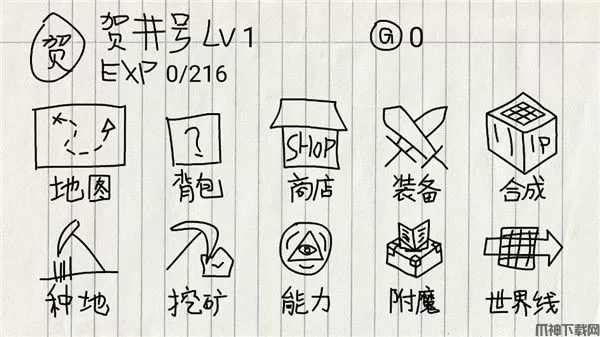 贺 贺井号 LV 1
G 0
EXP 0/216
?
SHOP
IP
地图 背包 商店 装备 合成
种地 挖矿 能力 附魔 世界线
M神下载网